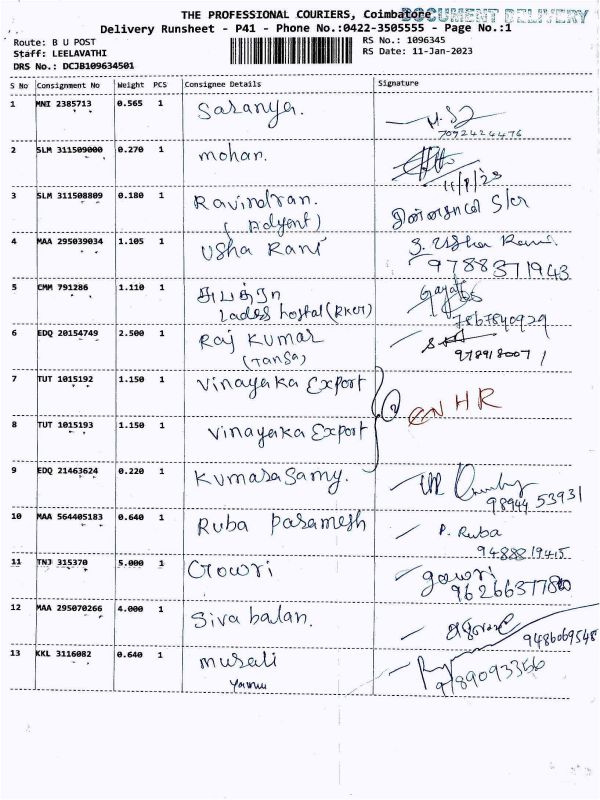 THE PROFESSIONAL COURIERS, Coimbatore
DOCUMENT DELIVERY
Delivery Runsheet - P41 - Phone No.:0422-3505555 - Page No.:1
Route: B U POST
Staff: LEELAVATHI
DRS No.: DCJB109634501
RS No.: 1096345
RS Date: 11-Jan-2023
S No Consignment No Weight PCS Consignee Details Signature
1 MNI 2385713 0.565 1 Saranya.
7092424476
2 SLM 311509000 0.270 1 mohan.
11/1/23
3 SLM 311508809 0.180 1 Ravindran.
(Adyont)
4 MAA 295039034 1.105 1 Usha Rani
9788371943
5 CMM 791286 1.110 1
Lades hostal (RKCT)
7867840929
6 EDQ 20154749 2.500 1 Raj Kumar
(Tansa)
7 TUT 1015192 1.150 1 Vinayaka Export
CNHR
8 TUT 1015193 1.150 1 Vinayaka Export
9 EDQ 21463624 0.220 1 Kumarasamy.
98944 53931
10 MAA 564405183 0.640 1 Ruba Paramesh P. Ruba
9488819415
11 TNJ 315370 5.000 1 Gowri gowri
12 MAA 295070266 4.000 1 Siva balan.
9486069548
13 KKL 3116082 0.640 1 murali